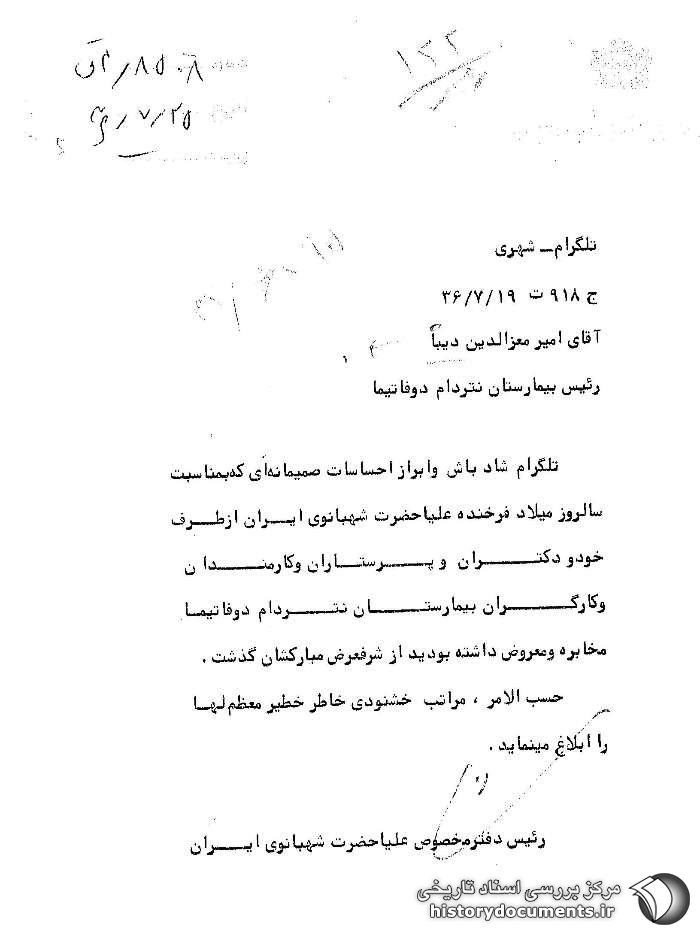 ۱۲۲
۸۵۰۸/۲ق
۲۵/۷/
تلگرام ـ شهری
ج ۹۱۸ ت ۳۶/۷/۱۹
آقای امیر معزالدین دیبا
رئیس بیمارستان نتردام دوفاتیما
تلگرام شاد باش وابراز احساسات صمیمانه‌ای که‌بمناسبت
سالروز میلاد فرخنده علیاحضرت شهبانوی ایران ازطرف
خودو دکتران و پرستاران وکارمندان
وکارگران بیمارستان نتردام دوفاتیما
مخابره ومعروض داشته بودید از شرفعرض مبارکشان گذشت .
حسب الامر ، مراتب خشنودی خاطر خطیر معظم‌لها
را ابلاغ مینماید .
رئیس دفترمخصوص علیاحضرت شهبانوی ایران
مرکز بررسی اسناد تاریخی
historydocuments.ir